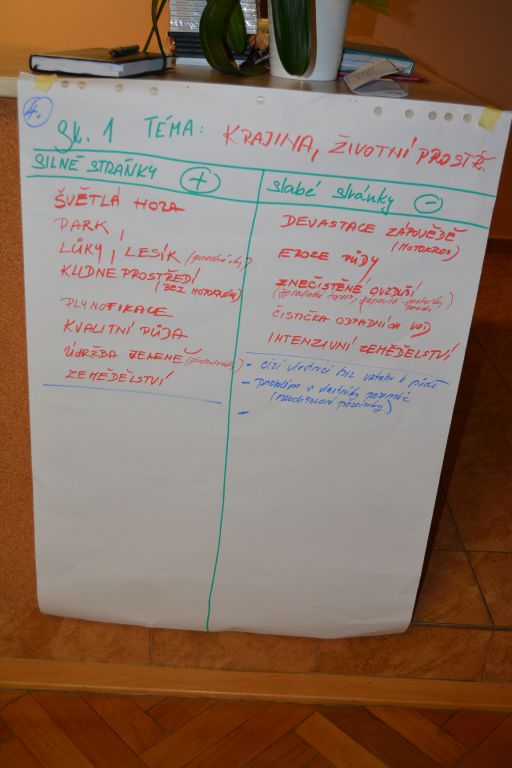 4.
SK. 1 TÉMA: KRAJINA, ŽIVOTNÍ PROSTŘ.
SILNÉ STRÁNKY +
SVĚTLÁ HORA
PARK,
LUKY, LESÍK
KLIDNÉ PROSTŘEDÍ
(BEZ MOTOKROSU)
PLYNOFIKACE
KVALITNÍ PŮDA
ÚDRŽBA ZELENĚ
ZEMĚDĚLSTVÍ
slabé stránky -
DEVASTACE ZÁPOVĚDĚ
(MOTOKROS)
EROZE PŮDY
ZNEČIŠTĚNÉ OVZDUŠÍ
ČISTIČKA ODPADNÍCH VOD
INTENZIVNÍ ZEMĚDĚLSTVÍ
- cizí vlastníci bez vztahu k půdě
- problém s vlastníky pozemků
-